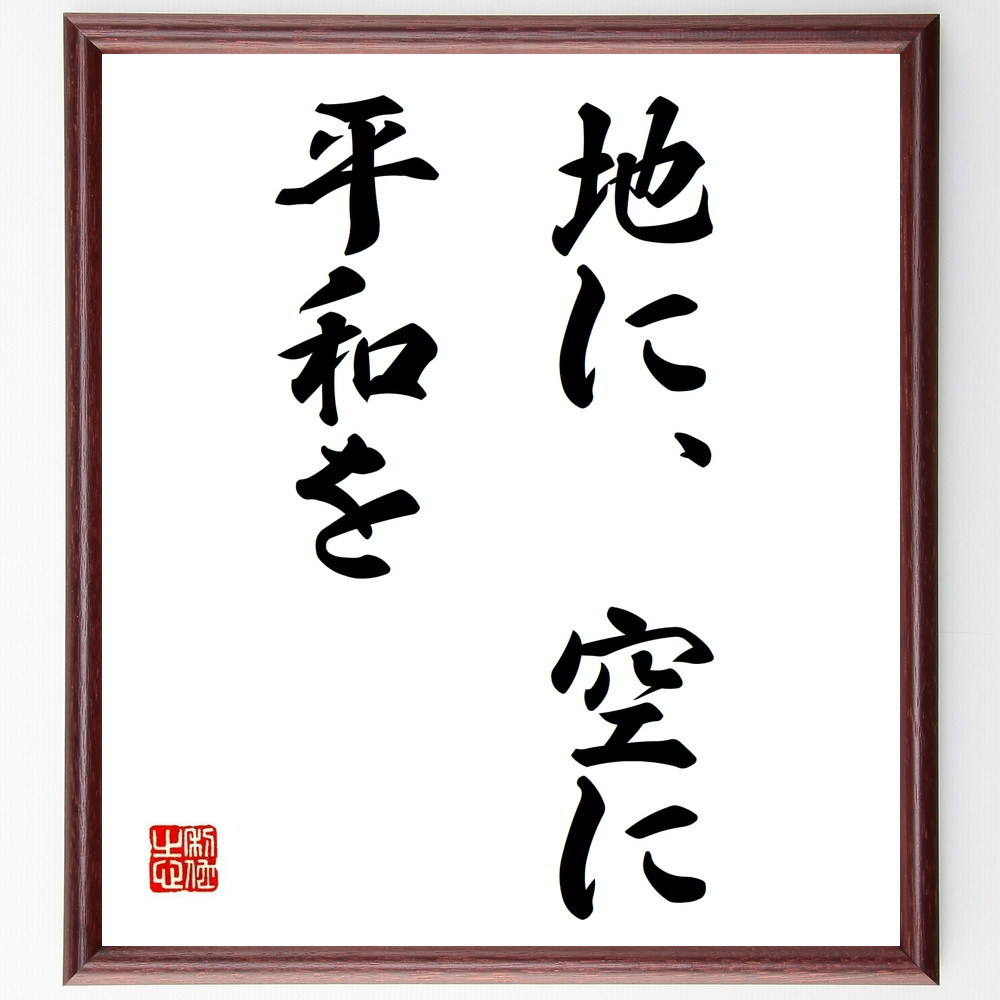 地に、空に
平和を